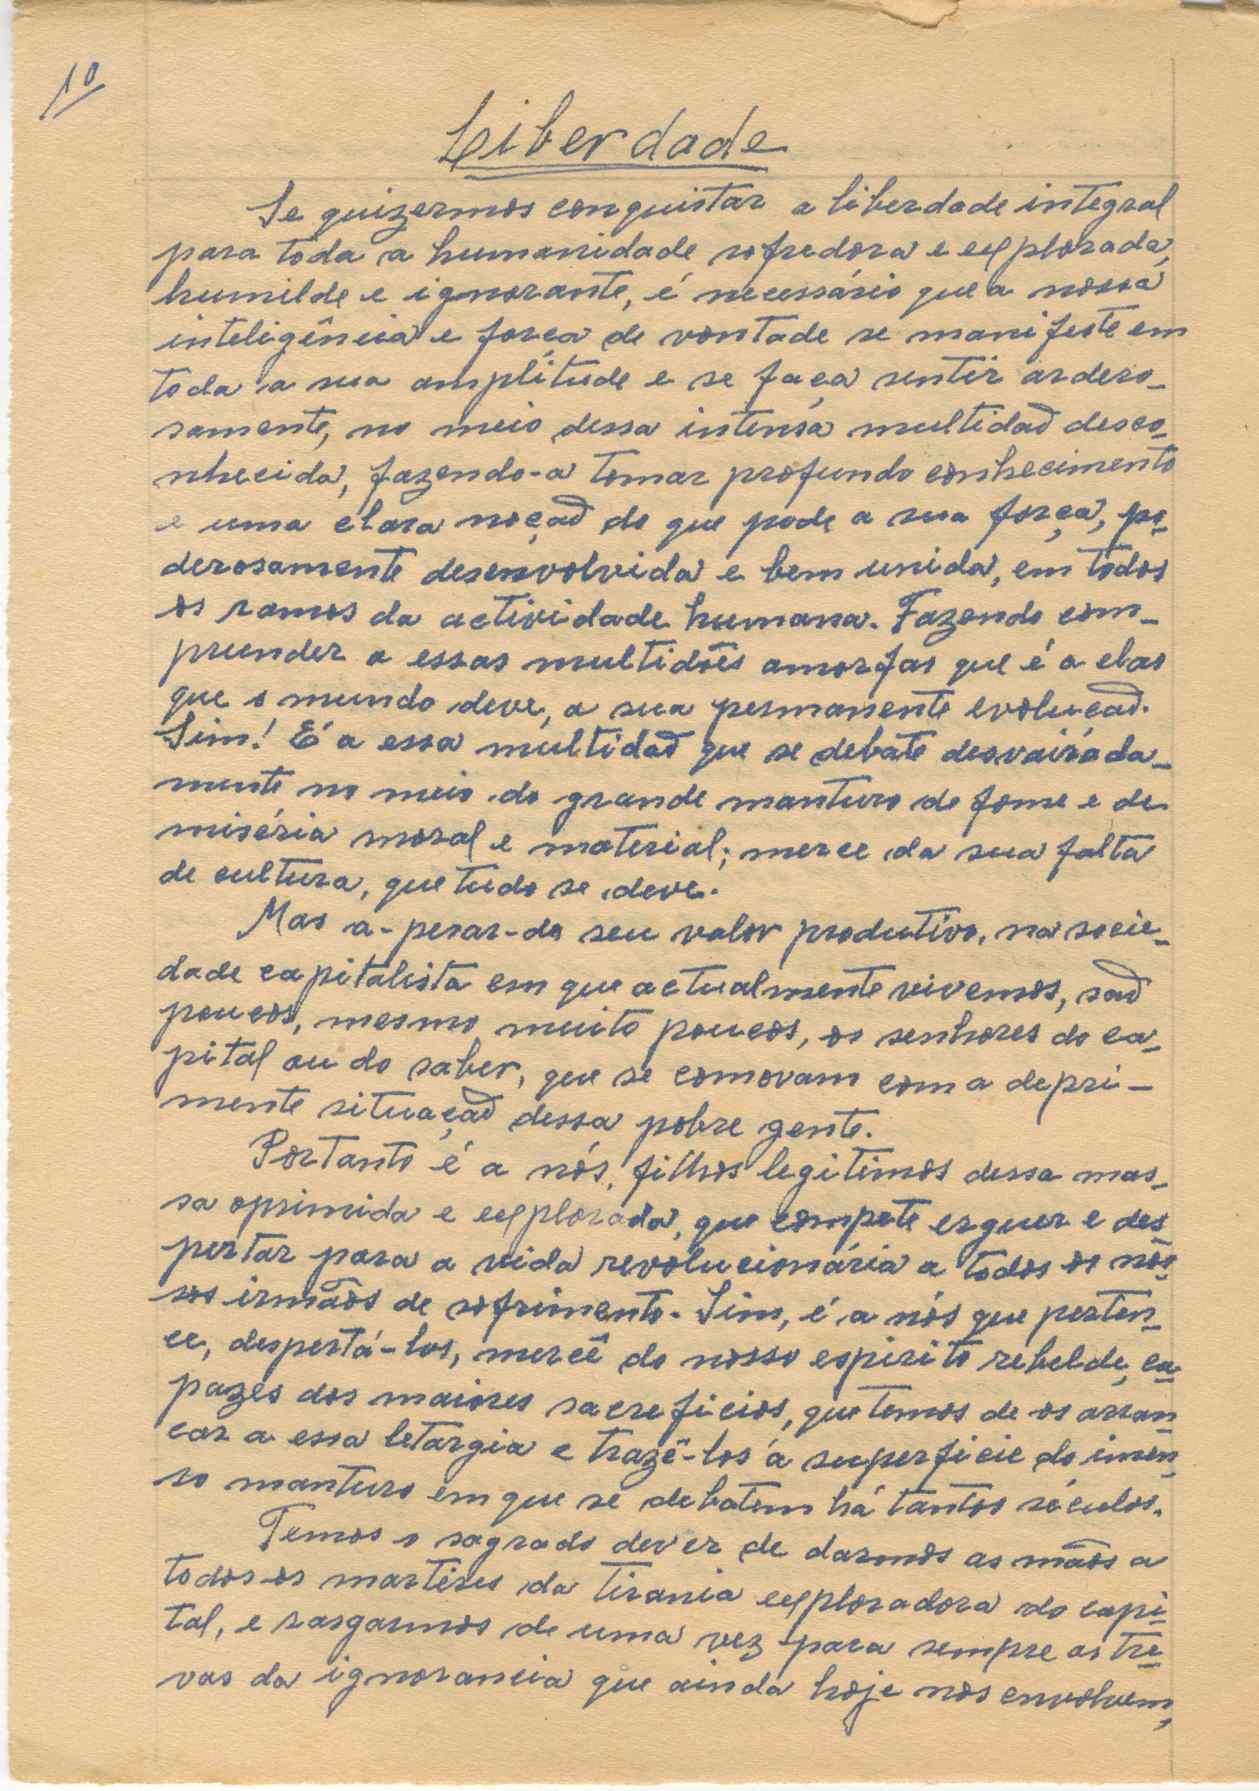 10
Liberdade
Se quizermos conquistar a liberdade integral
para toda a humanidade sofredora e explorada,
humilde e ignorante, é necessário que a nossa
inteligência e força de vontade se manifeste em
toda a sua amplitude e se faça sentir ardero-
samente, no meio dessa intensa multidaõ desco-
nhecida, fazendo-a tomar profundo conhecimento
e uma clara noçaõ do que pode a sua força, po-
derosamente desenvolvida e bem unida, em todos
os ramos da actividade humana. Fazendo com-
preender a essas multidões amorfas que é a elas
que o mundo deve, a sua permanente evoluçaõ.
Sim! É a essa multidaõ que se debate desvairada-
mente no meio do grande monturo de fome e de
miséria moral e material; merce da sua falta
de cultura, que tudo se deve.
Mas a-pesar-do seu valor produtivo, na socie-
dade capitalista em que actualmente vivemos, saõ
poucos, mesmo muito poucos, os senhores do ca-
pital ou do saber, que se comovam com a depri-
mente situaçaõ dessa pobre gente.
Portanto é a nós, filhos legitimos dessa mas-
sa oprimida e explorada, que compete erguer e des
pertar para a vida revolucionária a todos os nos-
sos irmãos de sofrimento. Sim, é a nós que perten-
ce, despertá-los, mercê do nosso espirito rebelde, ca-
pazes dos maiores sacreficios, que temos de os arran
car a essa letargia e trazê-los á superficie do imen-
so manturo em que se debatem há tantos séculos.
Temos o sagrado dever de darmos as mãos a
todos os martires da tirania exploradora do capi-
tal, e rasgarmos de uma vez para sempre as tre-
vas da ignorancia que ainda hoje nos envolvem,